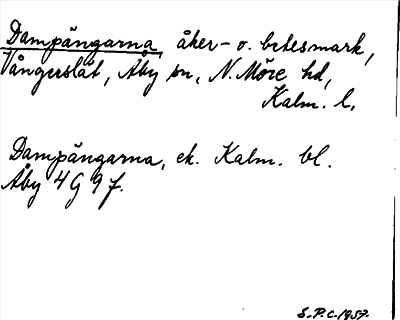 Dampängarna, åker- o. betesmark,
Vångerslät, Åby sn, N. Möre hd,
Kalm. l.
Dampängarna, ek. Kalm. bl.
Åby 4 G 9 f.
S.P.C. 1957.